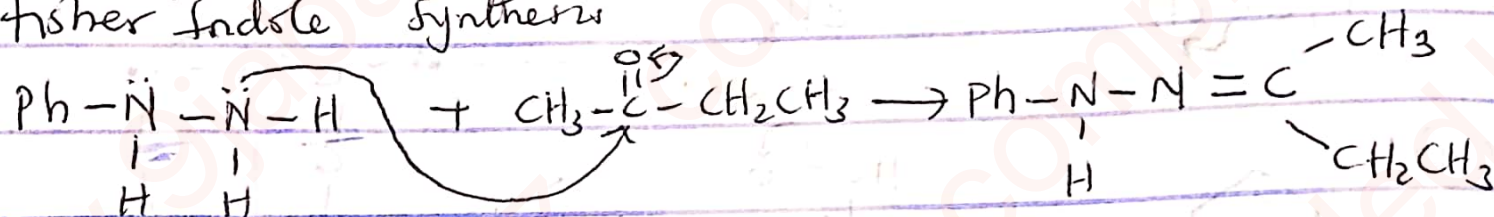 fisher Indole Synthesis
Ph-N̈-N̈-H + CH3-C-CH2CH3 → Ph-N-N=C
O
CH3
CH2CH3
H H H